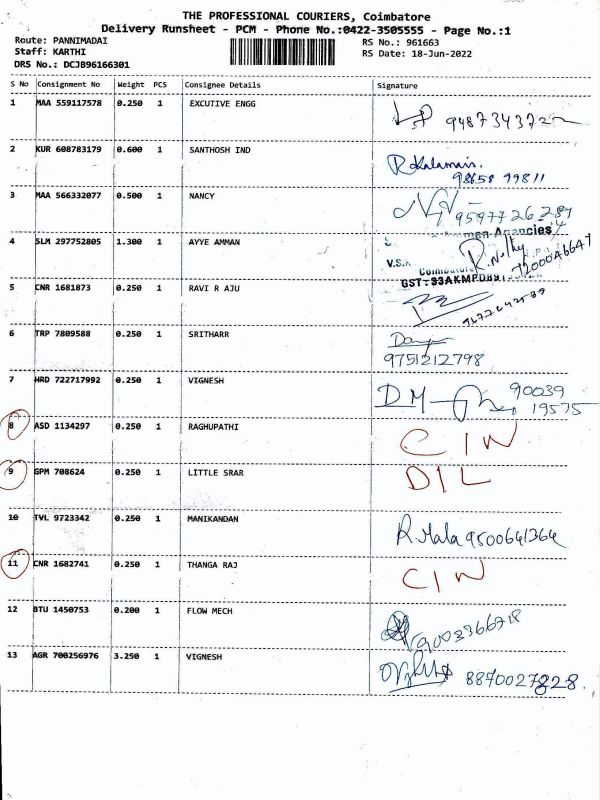 THE PROFESSIONAL COURIERS, Coimbatore
Delivery Runsheet - PCM - Phone No.:0422-3505555 - Page No.:1
Route: PANNIMADAI
Staff: KARTHI
DRS No.: DCJB96166301
RS No.: 961663
RS Date: 18-Jun-2022
S No Consignment No Weight PCS Consignee Details Signature
1 MAA 559117578 0.250 1 EXCUTIVE ENGG
2 KUR 608783179 0.600 1 SANTHOSH IND
98658 99811
3 MAA 566332077 0.500 1 NANCY
9597726284
Agencies
4 SLM 297752805 1.300 1 AYYE AMMAN
5 CNR 1681873 0.250 1 RAVI R AJU
6 TRP 7809588 0.250 1 SRITHARR
9751212798
7 HRD 722717992 0.250 1 VIGNESH DM 90039
19575
8 ASD 1134297 0.250 1 RAGHUPATHI CIN
9 GPM 708624 0.250 1 LITTLE SRAR DIL
10 TVL 9723342 0.250 1 MANIKANDAN R Mala 9500641364
11 CNR 1682741 0.250 1 THANGA RAJ CIN
12 BTU 1450753 0.200 1 FLOW MECH
13 AGR 700256976 3.250 1 VIGNESH 8870027828